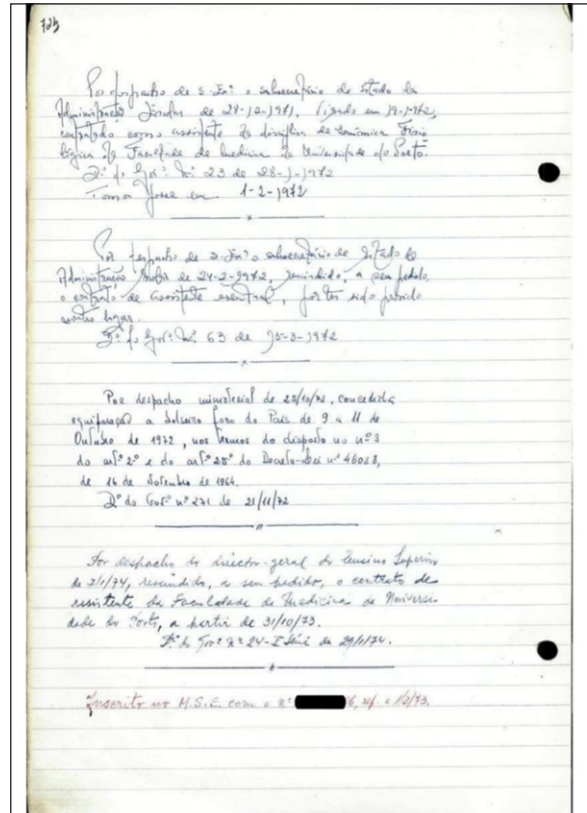 725
Por despacho de S. Exª o subsecretário do Estado da
Administração Escolar de 28-12-1971, visado em 19-1-972,
contratado como assistente da disciplina de Química Fisio
lógica da Faculdade de Medicina da Universidade do Porto.
Dº. do Govº. Nº. 23 de 28-1-1972
Tomou posse em 1-2-1972
Por despacho de S. Exª o subsecretário de Estado da
Administração Escolar de 24-2-1972, rescindido, a seu pedido,
o contrato de assistente eventual, por ter sido provido
noutro lugar.
Dº. do Govº. Nº. 63 de 15-3-1972
Por despacho ministerial de 28/10/72, concedida
equiparação a bolseiro fora do País de 9 a 11 de
Outubro de 1972, nos termos do disposto no nº 3
do artº 2º e do artº 28º do Decreto-Lei nº 46038,
de 16 de Novembro de 1964.
Dº do Govº nº 271 de 21/11/72
Por despacho do director-geral do Ensino Superior
de 7/1/74, rescindido, a seu pedido, o contrato de
assistente da Faculdade de Medicina da Universi
dade do Porto, a partir de 31/10/73.
Dº do Govº Nº 24-I Série de 29/1/74.
Inscrito no M.S.E. com o nº 6, 1/3/73.